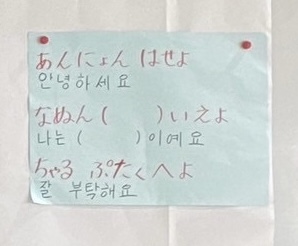 あんにょん はせよ
안녕하세요
なぬん (　　　) いえよ
나는 (　　　) 이예요
ちゃる ぷたくへよ
잘 부탁해요